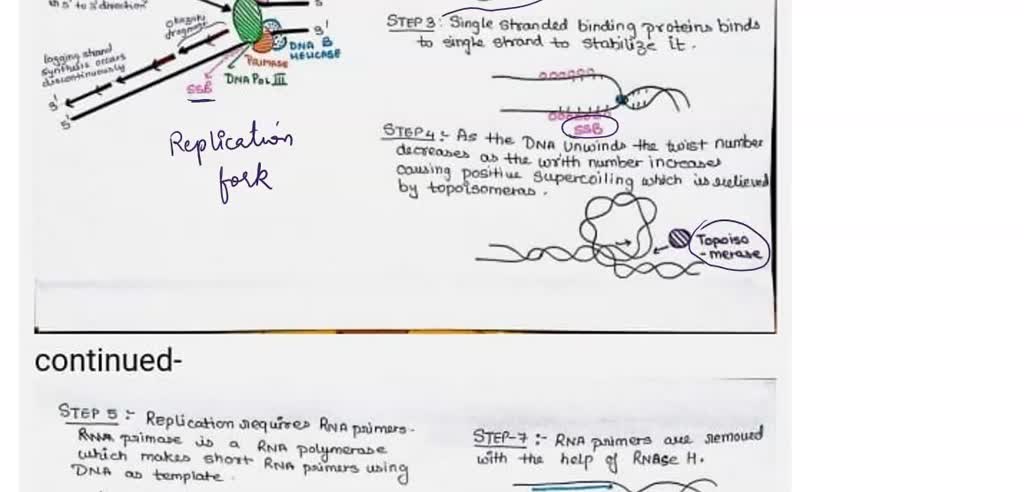 in 5' to 3' direction
Okazaki
fragment
5'
3'
DNA B
HELICASE
PRIMASE
DNA POL III
SSB
lagging strand
synthesis occurs
discontinuously
3'
5'
Replication
fork
STEP 3: Single stranded binding proteins binds
to single strand to stabilize it.
SSB
STEP4:- As the DNA unwinds the twist number
decreases as the writh number increases
causing positive supercoiling which is relieved
by topoisomeras.
Topoiso
-merase
continued-
STEP 5:- Replication requires RNA primers.
RNA primase is a RNA polymerase
which makes short RNA primers using
DNA as template.
STEP-7:- RNA primers are removed
with the help of RNAse H.